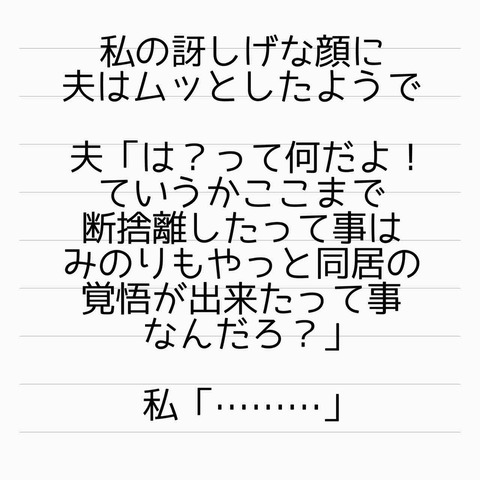 私の訝しげな顔に
夫はムッとしたようで
夫「は？って何だよ！
ていうかここまで
断捨離したって事は
みのりもやっと同居の
覚悟が出来たって事
なんだろ？」
私「………」